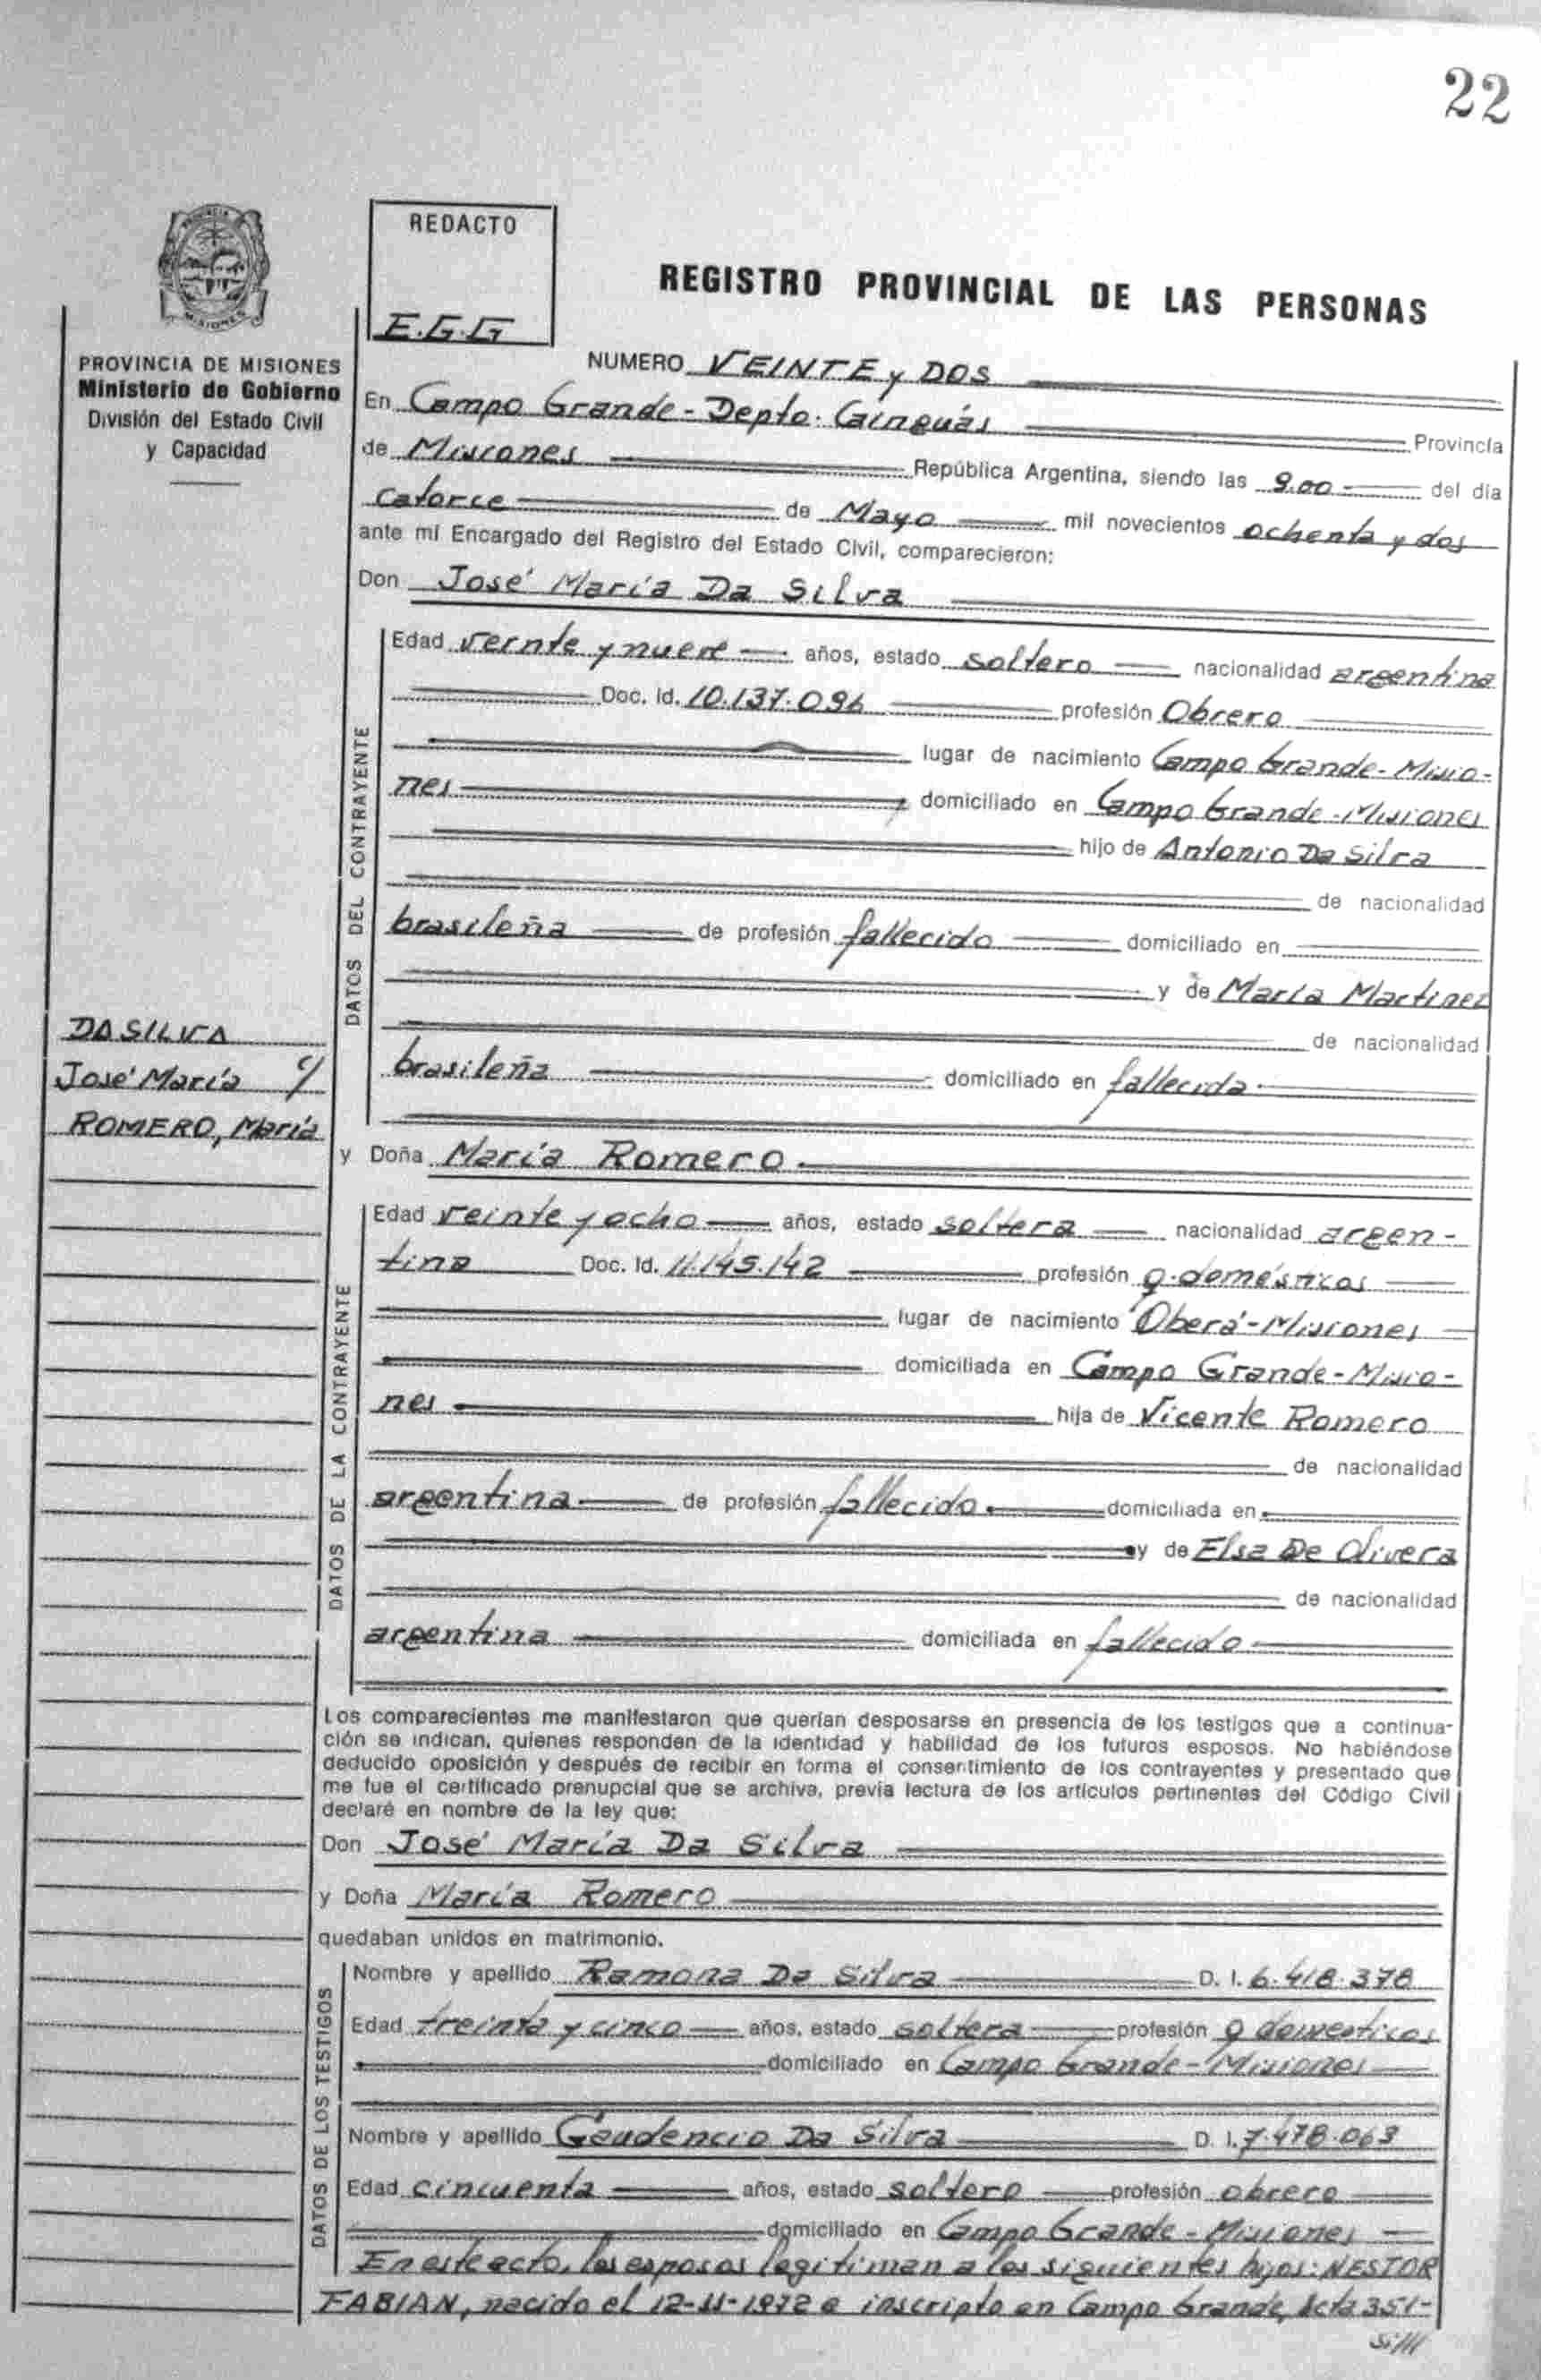 22
REDACTO
E.G.G
REGISTRO PROVINCIAL DE LAS PERSONAS
PROVINCIA DE MISIONES
Ministerio de Gobierno
División del Estado Civil
y Capacidad
DA SILVA
José María c/
ROMERO, María
NUMERO VEINTE y DOS
En Campo Grande - Depto. Cainguás Provincia
de Misiones República Argentina, siendo las 9.00 del día
Catorce de Mayo mil novecientos ochenta y dos
ante mí Encargado del Registro del Estado Civil, comparecieron:
Don José María Da Silva
DATOS DEL CONTRAYENTE
Edad veinte y nueve años, estado soltero nacionalidad argentina
Doc. Id. 10.137.096 profesión Obrero
lugar de nacimiento Campo Grande - Misio-
nes domiciliado en Campo Grande - Misiones
hijo de Antonio Da Silva
de nacionalidad
brasileña de profesión fallecido domiciliado en
y de María Martinez
de nacionalidad
brasileña domiciliado en fallecida
y Doña María Romero
DATOS DE LA CONTRAYENTE
Edad veinte y ocho años, estado soltera nacionalidad argen-
tina Doc. Id. 11.145.142 profesión q. domésticos
lugar de nacimiento Oberá - Misiones
domiciliada en Campo Grande - Misio-
nes hija de Vicente Romero
de nacionalidad
argentina de profesión fallecido domiciliada en
y de Elsa De Olivera
de nacionalidad
argentina domiciliada en fallecido
Los comparecientes me manifestaron que querían desposarse en presencia de los testigos que a continua-
ción se indican, quienes responden de la identidad y habilidad de los futuros esposos. No habiéndose
deducido oposición y después de recibir en forma el consentimiento de los contrayentes y presentado que
me fue el certificado prenupcial que se archiva, previa lectura de los artículos pertinentes del Código Civil
declaré en nombre de la ley que:
Don José María Da Silva
y Doña María Romero
quedaban unidos en matrimonio.
DATOS DE LOS TESTIGOS
Nombre y apellido Ramona Da Silva D. I. 6.418.378
Edad treinta y cinco años, estado soltera profesión q domesticos
domiciliado en Campo Grande - Misiones
Nombre y apellido Gaudencio Da Silva D. I. 7.478.063
Edad cincuenta años, estado soltero profesión obrero
domiciliado en Campo Grande - Misiones
En este acto, los esposos legitiman a los siguientes hijos: NESTOR
FABIAN, nacido el 12-11-1972 e inscripto en Campo Grande, Acta 351-